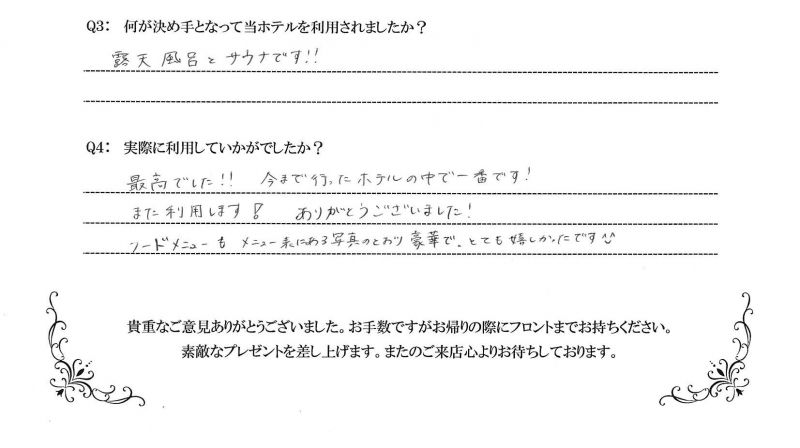 Q3: 何が決め手となって当ホテルを利用されましたか？
露天風呂とサウナです!!
Q4: 実際に利用していかがでしたか？
最高でした!! 今まで行ったホテルの中で一番です!
また利用します! ありがとうございました!
フードメニューも メニュー表にある写真のとおり豪華で、とても嬉しかったです
貴重なご意見ありがとうございました。お手数ですがお帰りの際にフロントまでお持ちください。
素敵なプレゼントを差し上げます。またのご来店心よりお待ちしております。